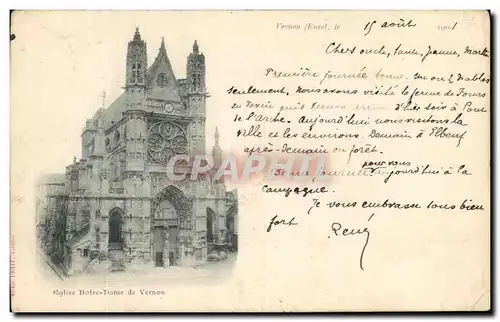 Vernon (Eure), le 15 août 1901
Chers oncle, tante, Jeanne, Marth
Première journée bonne.
seulement. Nous avons visité la ferme de Tours
en Vexin puis Vernon arrivés hier soir à Pont
de l'arche. Aujourd'hui nous visitons la
ville et les environs. Demain à Elbeuf
après-demain en forêt.
Bonne journée pour vous aujourd'hui à la
Campagne.
Je vous embrasse tous bien
fort
René
CRAPH
Eglise Notre-Dame de Vernon